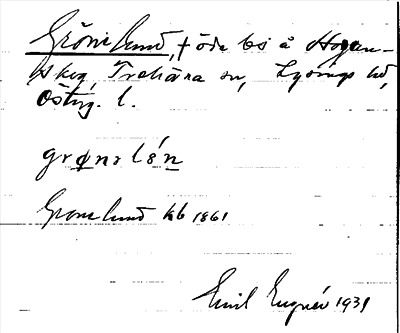 Grönelund, † öde bs å Hogan-
skog, Trehörna sn, Lysings hd,
Östg. l.
grønelén
Gronelund kb 1861
Emil Eugnér 1931